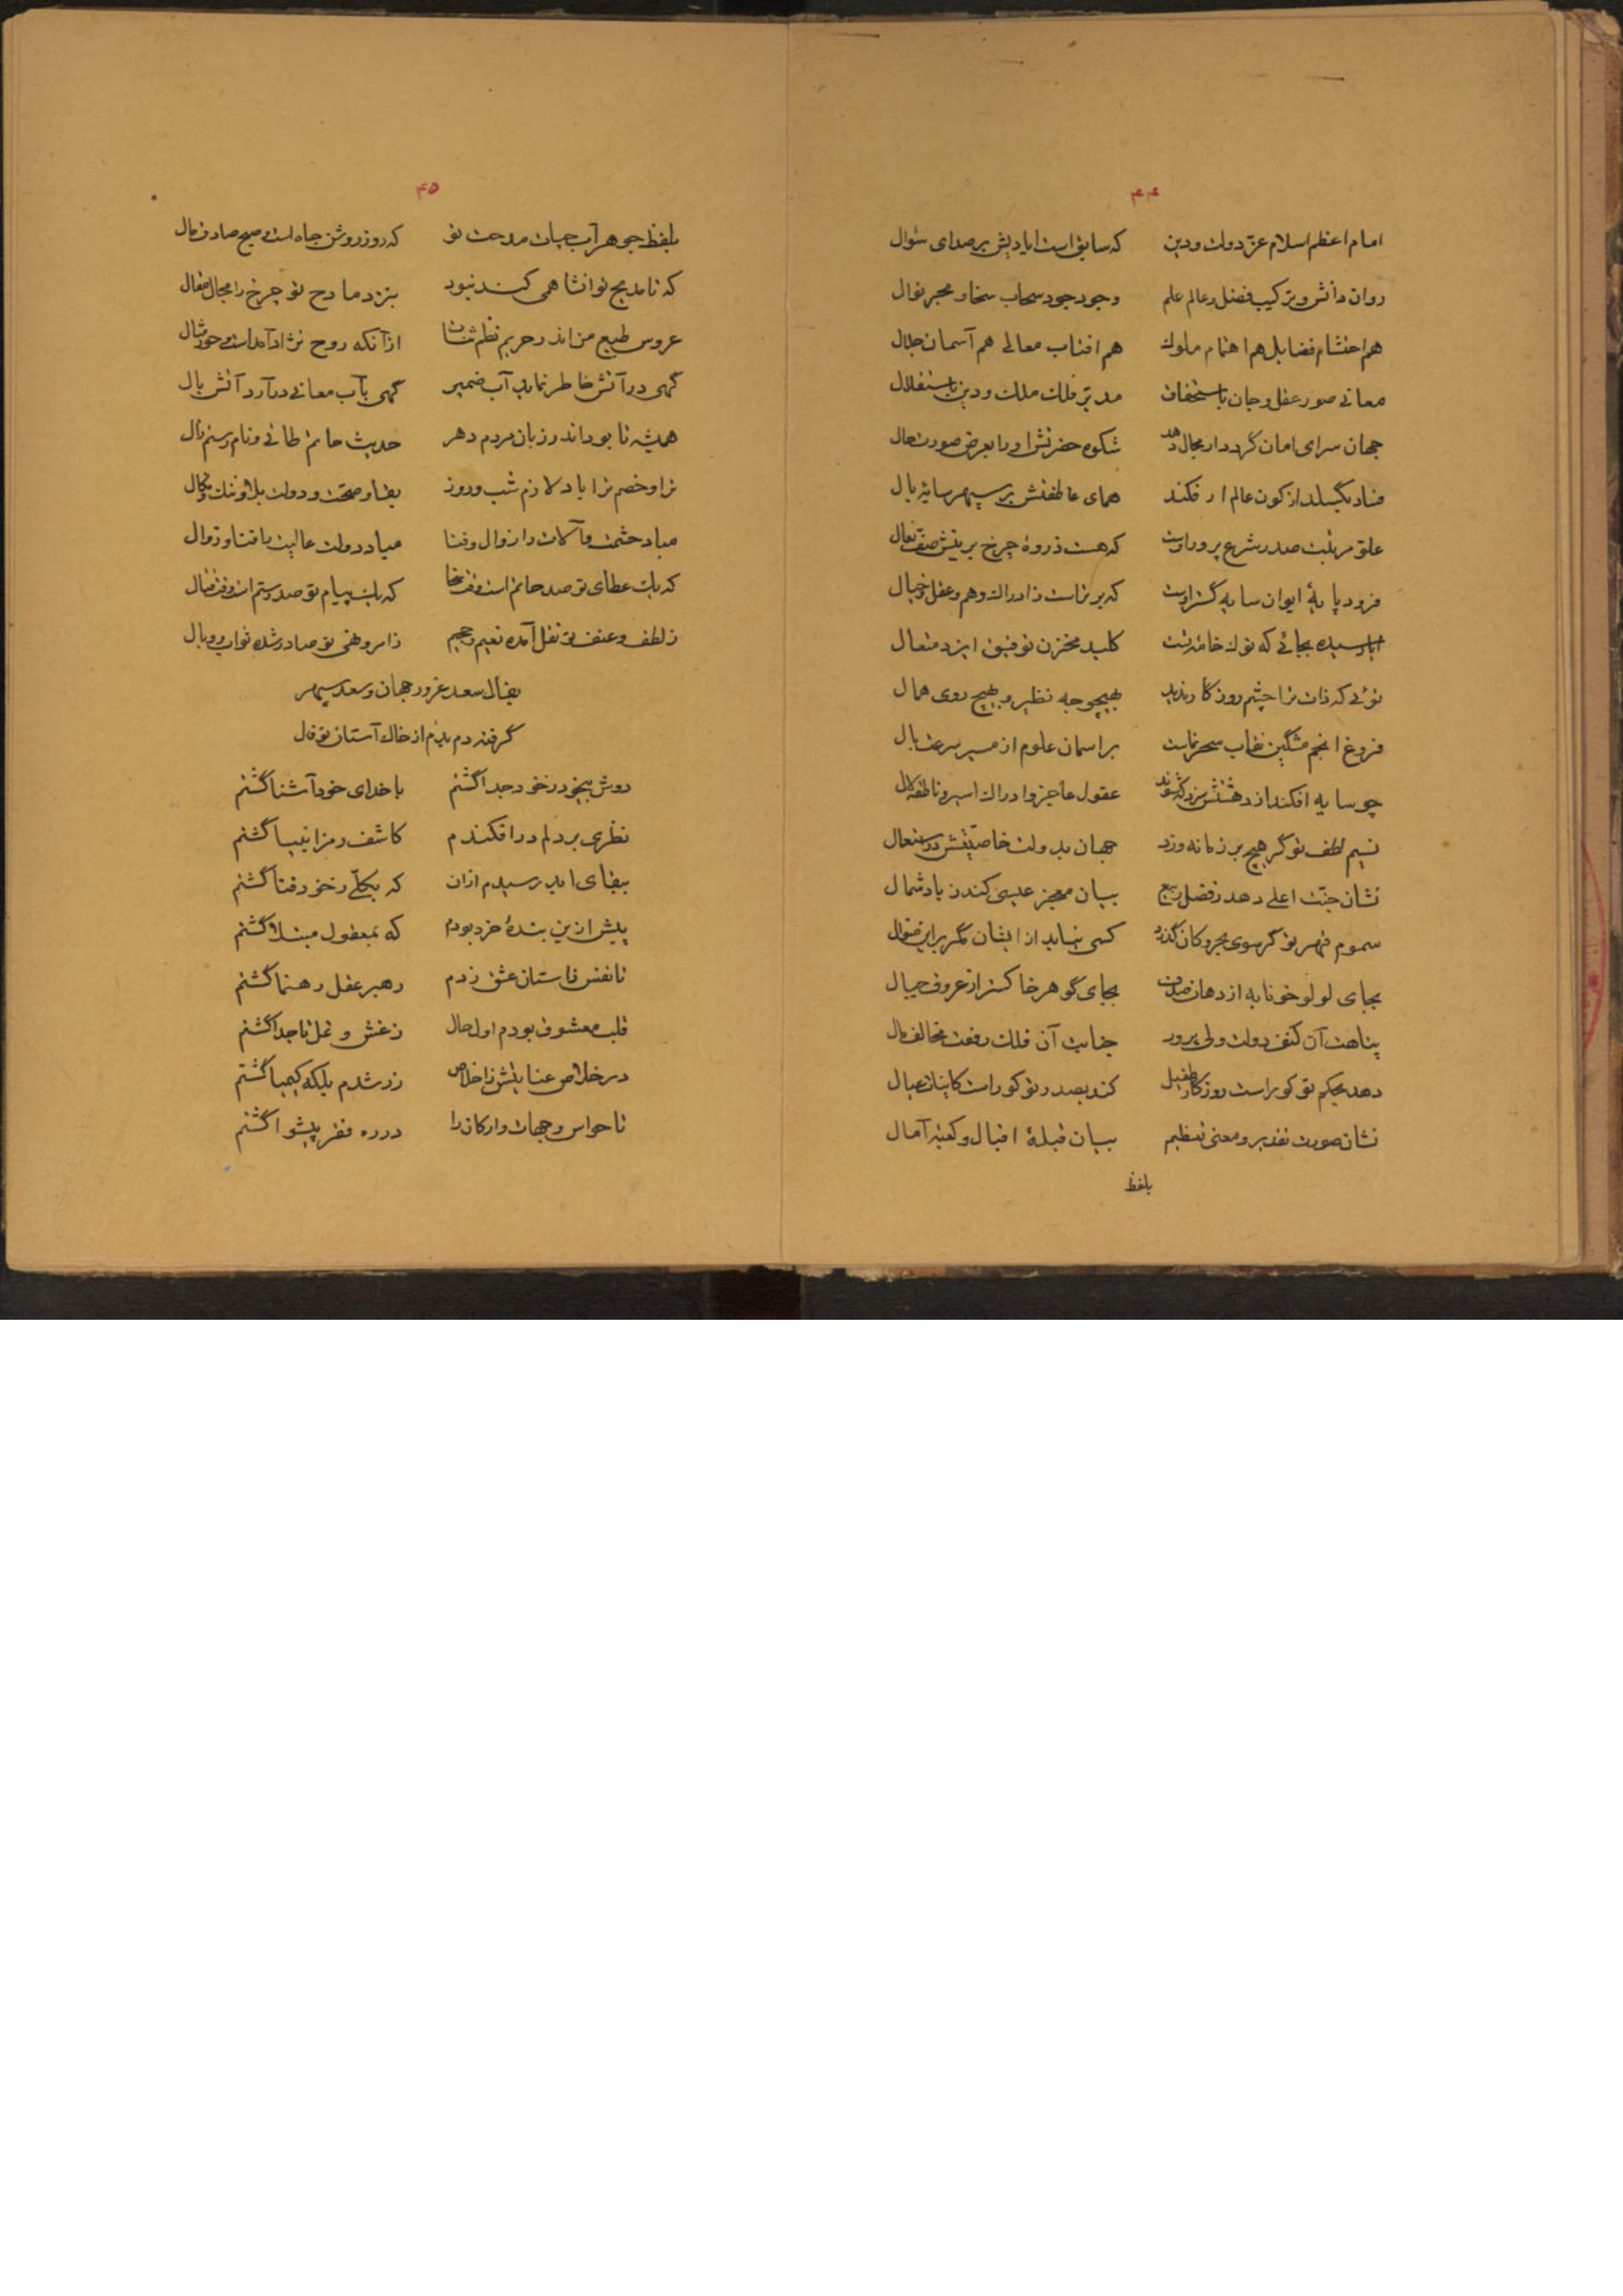 ۴۴
امام اعظم اسلام عزّ دولت و دین که سابق است ایادیش بر صدای سئوال
روان دانش و ترکیب فضل و عالم علم وجود جود سحاب سخا و بحر نوال
هم احتشام فضایل هم اهتمام ملوک هم افتاب معالی هم آسمان جلال
معانی صور عقل و جان باستحقاق مدبّر فلک ملک و دین باستقلال
جهان سرای امان گردد ار مجال دهد شکوه حضرتش او را بعرض صورت حال
فساد بگسلد از کون عالم ار فکند همای عاطفتش بر سپهر سایهٔ بال
علو مرتبت صدر شرع پرور اوست که هست ذروهٔ چرخ برینش صفّ نعال
فرود پایهٔ ایوان سایه گستر اوست که برتر است ز ادراک و هم و عقل و خیال
ایا رسیده بجائی که نوک خامه تست کلید مخزن توفیق ایزد متعال
توئی که ذات ترا چشم روزگار ندید بهیچوجه نظیر و بهیچ روی همال
فروغ انجم مشگین نقاب سحرنمات بر اسمان علوم از مسیر سرعت بال
چو سایه افکند از دهشتش سزد که شوند عقول عاجز و ادراک اسیر و ناطقه لال
نسیم لطف تو گر هیچ بر زمانه وزد جهان بدولت خاصیّتش در استعمال
نشان جنّت اعلی دهد ز فضل ربیع بیان معجز عیسی کند ز باد شمال
سموم قهر تو گر سوی بحر و کان گذرد کسی نیاید از ایشان مگر براین منوال
بجای لولو خونابه از دهان صدف بجای گوهر خاکستر از عروق جبال
پناهت آن کنف دولت ولی پرور جنابت آن فلک رفعت مخالف مال
دهد بحکم تو کو راست روزگار طفیل کند بصدر تو کو راست کاینات عیال
نشان صورت تقدیر و معنی تعظیم بیان قبلهٔ اقبال و کعبه آمال
بلفظ
۴۵
بلفظ جوهر آب حیات مدحت تو که روز روشن جاه است و صبح صادق مال
که تا مدیح تو انشا همی کند نبود بنزد مادح تو چرخ را مجال مقال
عروس طبع من اندر حریم نظم ثنات از آنکه روح نژاد آمد است و حور مثال
گهی در آتش خاطر نماید آب ضمیر گهی بآب معانی در آرد آتش بال
همیشه تا بود اندر زبان مردم دهر حدیث حاتم طائی و نام رستم زال
ترا و خصم ترا باد لازم شب و روز بقا و صحت و دولت بلا و ننک و نکال
مباد حشمت و آلات را زوال و فنا مباد دولت عالیت با فنا و زوال
که یک عطای تو صد حاتم است وقت سخا که یک پیام تو صد رستم است وقت قتال
ز لطف و عنف تو نقل آمده نعیم و جحیم ز امر و نهی تو صادر شده ثواب و وبال
بفال سعد غرور جهان و سعد سپهر
گرفته دم بدم از خاک آستان تو فال
دوش بیخود ز خود جدا گشتم با خدای خود آشنا گشتم
نظری بر دلم در افکندم کاشف رمز انبیا گشتم
ببقای ابد رسیدم ازان که بکلّی ز خود فنا گشتم
پیش ازین بندهٔ خرد بودم که بمعقول مبتلا گشتم
تا نفس ز استان عشق زدم رهبر عقل رهنما گشتم
قلب معشوق بودم اول حال ز غش و غل تا جدا گشتم
در خلاص عنایتش ز اخلاص زر شدم بلکه کیمیا گشتم
تا حواس و جهات و ارکان را در ره فقر پیشوا گشتم